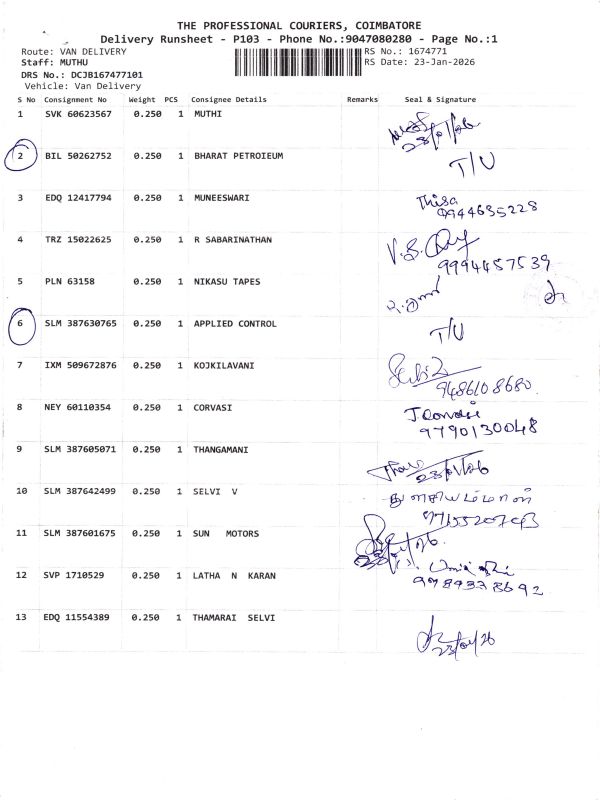 THE PROFESSIONAL COURIERS, COIMBATORE
Delivery Runsheet - P103 - Phone No.:9047080280 - Page No.:1
Route: VAN DELIVERY RS No.: 1674771
Staff: MUTHU RS Date: 23-Jan-2026
DRS No.: DCJB167477101
Vehicle: Van Delivery
S No Consignment No Weight PCS Consignee Details Remarks Seal & Signature
1 SVK 60623567 0.250 1 MUTHI 23/01/26
2 BIL 50262752 0.250 1 BHARAT PETROIEUM T/U
3 EDQ 12417794 0.250 1 MUNEESWARI Thisa
9944635228
4 TRZ 15022625 0.250 1 R SABARINATHAN V.S.
9994457539
5 PLN 63158 0.250 1 NIKASU TAPES
6 SLM 387630765 0.250 1 APPLIED CONTROL T/U
7 IXM 509672876 0.250 1 KOJKILAVANI
9486108680
8 NEY 60110354 0.250 1 CORVASI
9790130048
9 SLM 387605071 0.250 1 THANGAMANI
23/01/26
10 SLM 387642499 0.250 1 SELVI V துளசியம்மாள்
11 SLM 387601675 0.250 1 SUN MOTORS
12 SVP 1710529 0.250 1 LATHA N KARAN
13 EDQ 11554389 0.250 1 THAMARAI SELVI
23/01/26